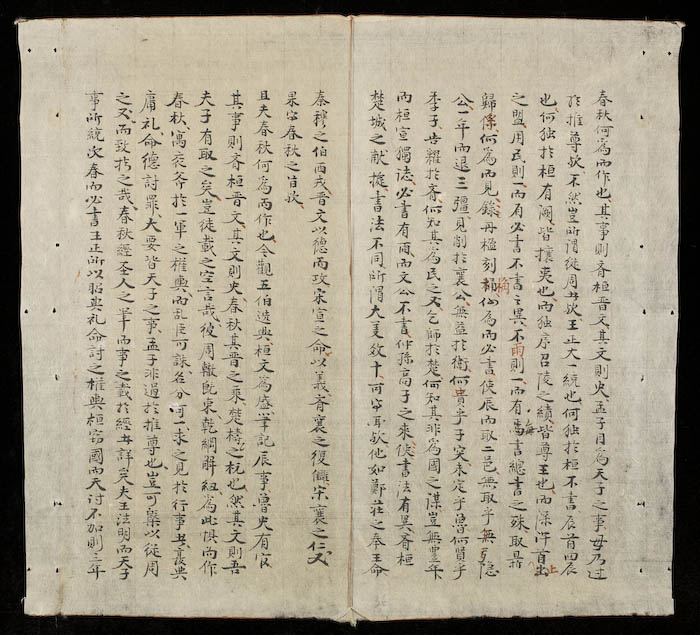 春秋何為而作也其事則斉桓晋文其文則史孟子目為天子之事毋乃过
於推尊欤不然豈所謂従周共欤王正大一統也何独於桓不書在首四辰
也何独於桓有闕皆攘夷也而独序召陵之績皆尊王也而深許首止
之盟用民則一而有必書不書之異不雨則一而有每書總書之殊取
歸何為而見録丹楹刻桷何為而必書使辰而取二邑無取乎無隐
公一年而退三疆見削於襄公無益於衛何貴乎子突未定乎魯何賢乎
季子告糴於斉何知其為民之災乞師於楚何知其非為国之謀豈無豊年
而桓宣独誌必書有雨而文公不書仲孫高子之來使書法有異斉桓
楚城之献捷書法不同所謂大美效十可事耳欤他如鄭莊之奉王命
秦穆之伯西戎晋文以德而攻宋宣之命以義斉襄之復讎宋襄之仁又
果害春秋之旨欤
且夫春秋何為而作也今觀五伯迭興桓文為盛筆記辰事魯史有官
其事則斉桓晋文其文則史春秋其晋之乘楚檮之杌也然其文則吾
夫子有取之矣豈徒載之空言哉後周轍既東乾綱解紐為此惧而作
春秋寓衮斧於一筆之權輿而乱臣可誅名分可一求之見於行事共襃典
庸礼命德討罪大要皆天子之事孟子非過於推尊也豈可槩以従周
之文而致抗之哉春秋經圣人之筆而事之載於經共詳矣夫王法明而天子
事所統次春而必書王正所以昭典礼命討之權輿桓窃國而天讨不加則三年